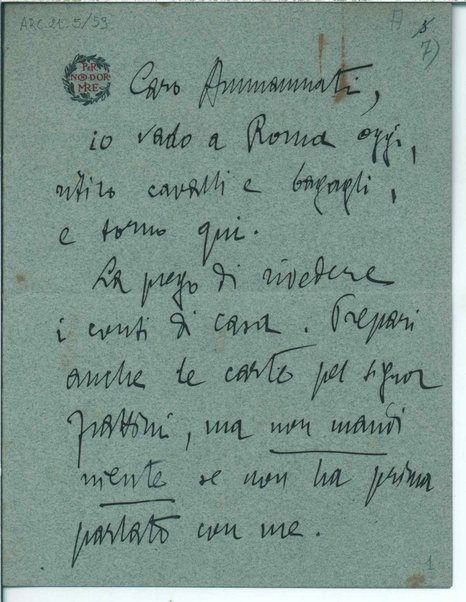 ARC.21.5/59
A 5
7)
PER
NON DOR
MIRE
Caro Ammannati,
io vado a Roma oggi,
ritiro cavalli e bagagli,
e torno qui.
La prego di rivedere
i conti di casa. Prepari
anche le carte pel signor
, ma non mandi
niente se non ha prima
parlato con me.
1